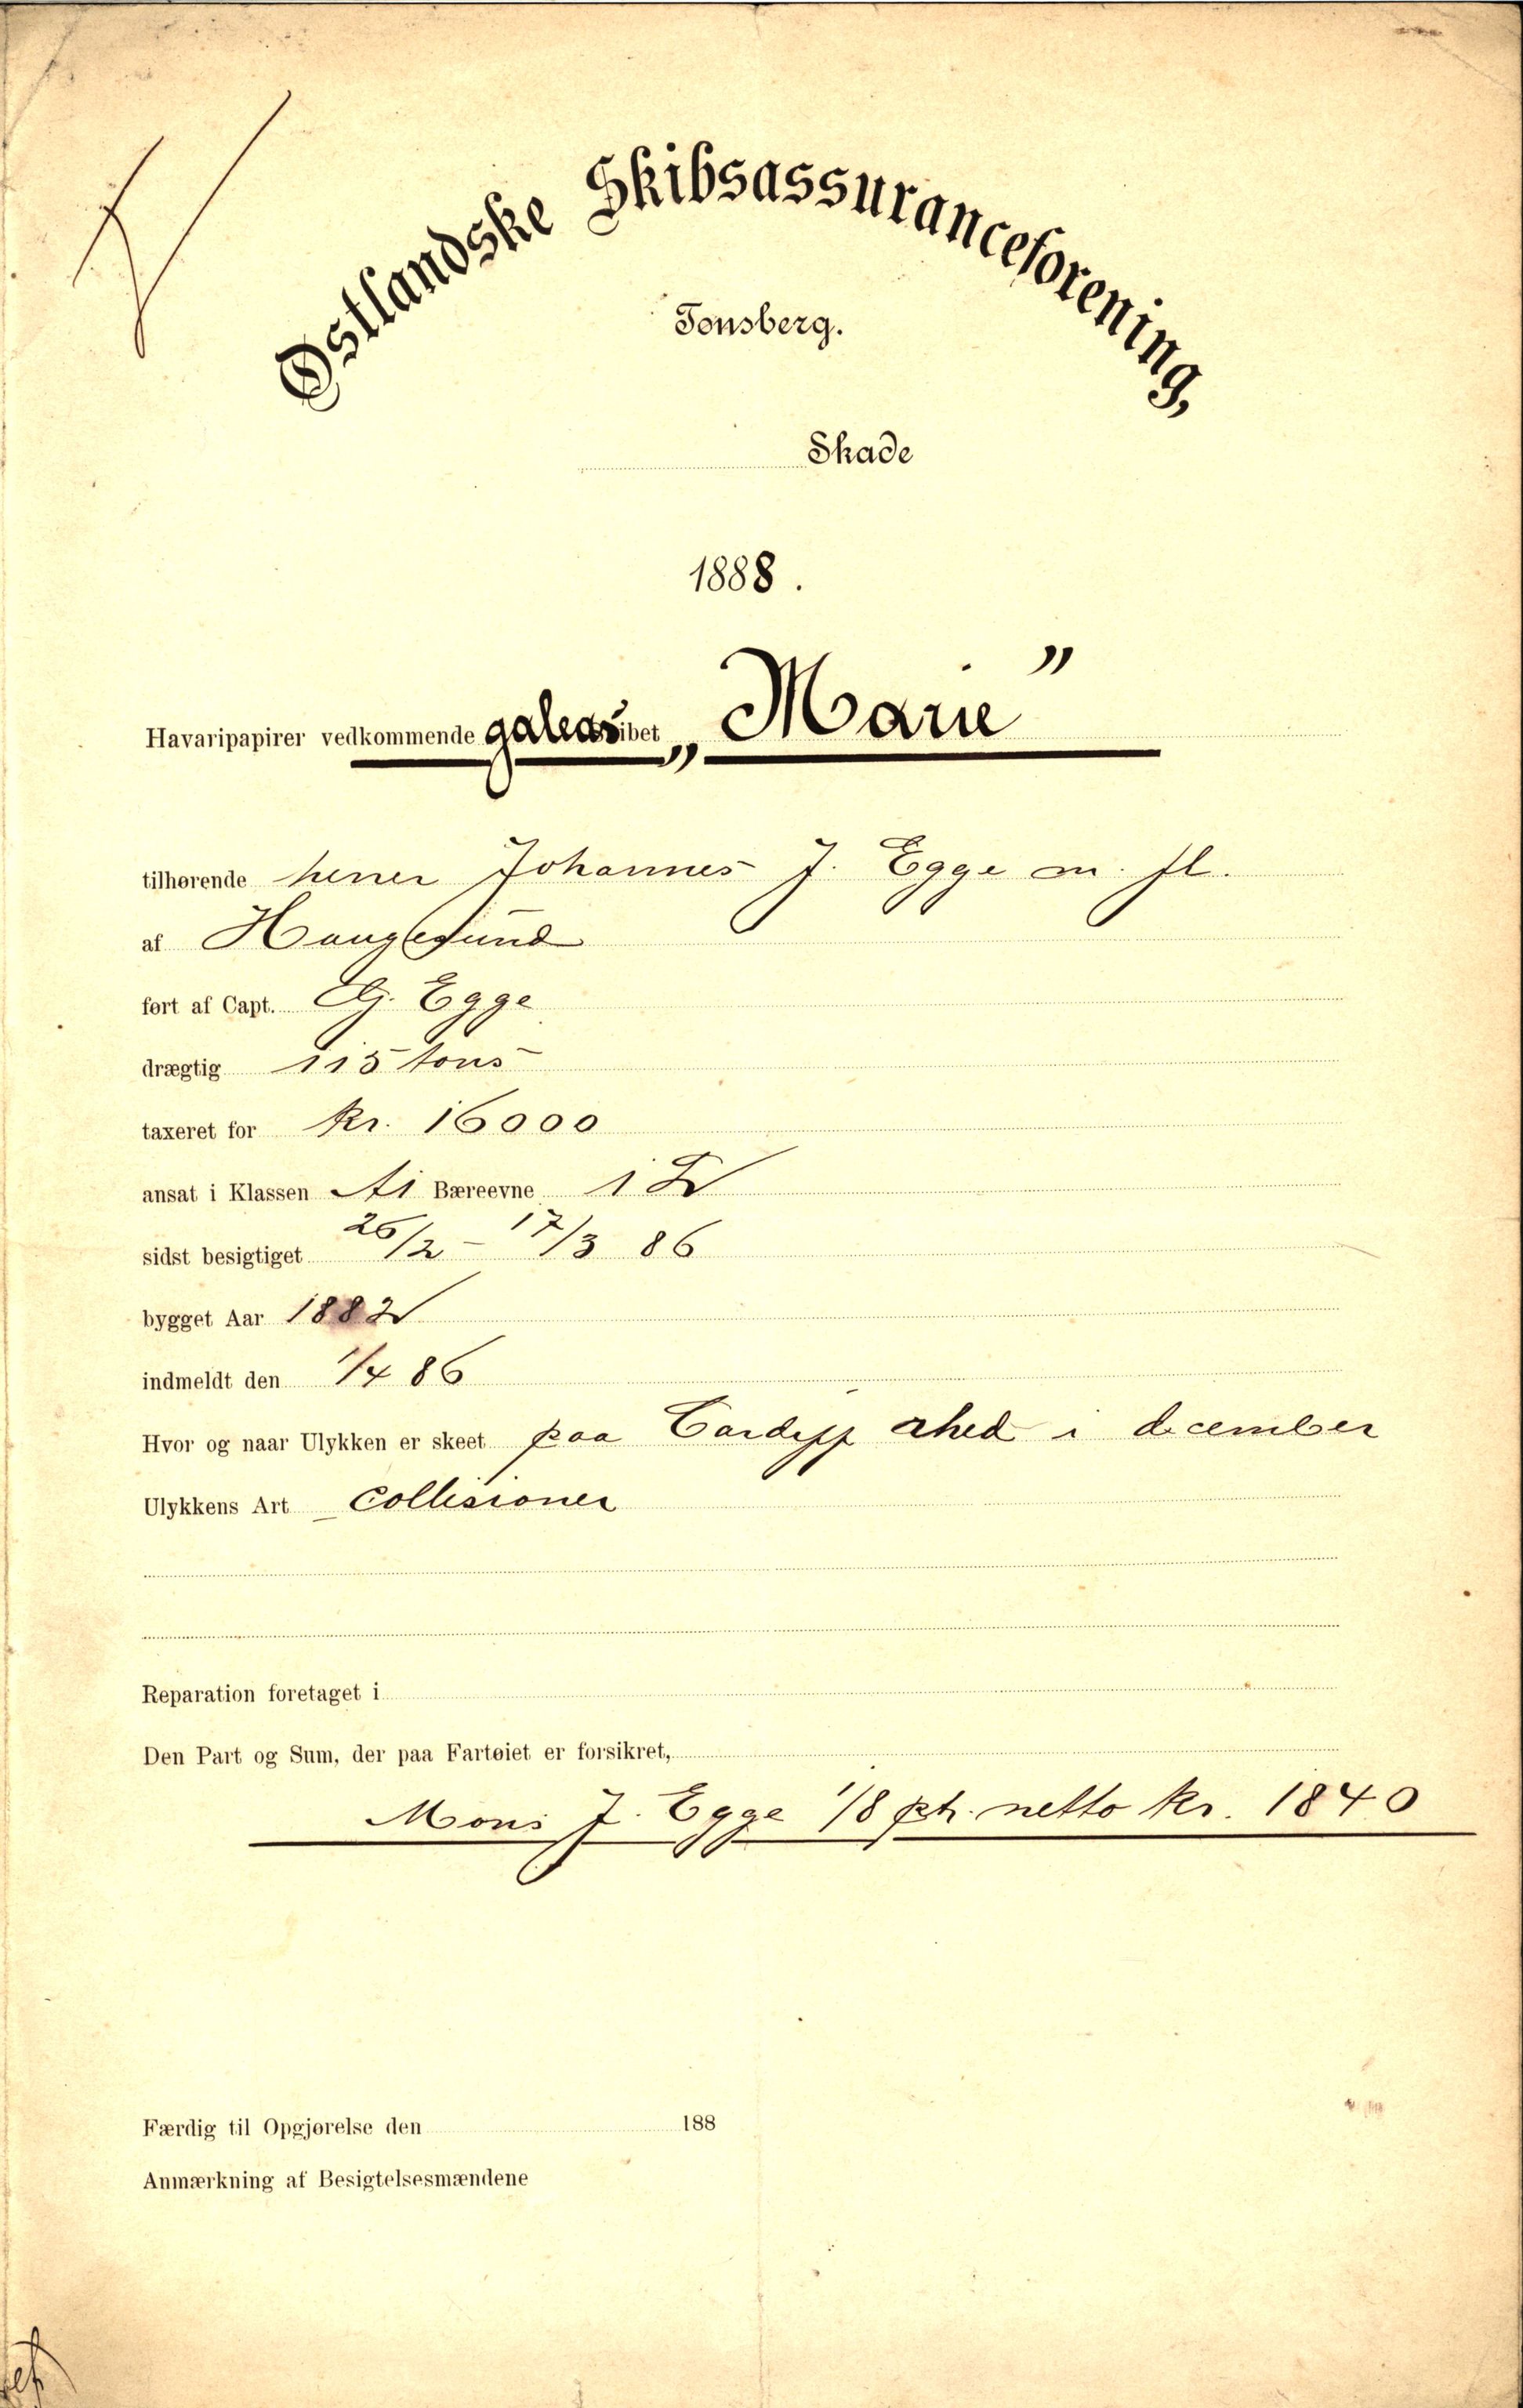 Østlandske Skibsassuranceforening,
Tønsberg.
Skade
1888.
Havaripapirer vedkommende galeasibet „Marie”
tilhørende herrer Johannes J. Egge m. fl.
af Haugesund
ført af Capt. Egge
drægtig 115 tons
taxeret for Kr. 16000
ansat i Klassen A1 Bæreevne 1
sidst besigtiget 26/2 - 17/3 86
bygget Aar 1882
indmeldt den 1/4 86
Hvor og naar Ulykken er skeet paa Cardiff rhed i december
Ulykkens Art Collisioner
Reparation foretaget i
Den Part og Sum, der paa Fartøiet er forsikret,
Mons J. Egge 1/8 pt. netto kr. 1840
Færdig til Opgjørelse den 188
Anmærkning af Besigtelsesmændene